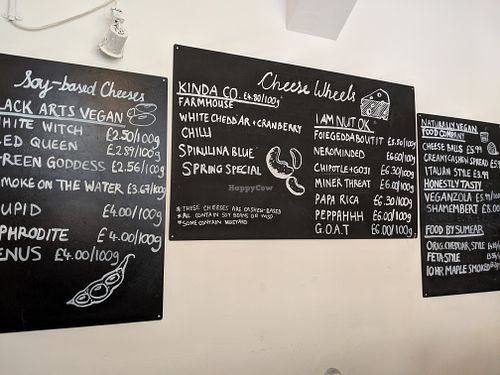 Soy-based Cheeses
LACK ARTS VEGAN
WHITE WITCH £2.50/100g
LED QUEEN £2.89/100g
GREEN GODDESS £2.56/100g
SMOKE ON THE WATER £3.67/100g
UPID £4.00/100g
PHRODITE £4.00/100g
ENUS £4.00/100g
Cheese Wheels
KINDA CO. £4.80/100g
FARMHOUSE
WHITE CHEDDAR + CRANBERRY
CHILLI
SPIRULINA BLUE
SPRING SPECIAL
* THESE CHEESES ARE CASHEW-BASED
* ALL CONTAIN SOY BEANS OR MISO
* SOME CONTAIN MUSTARD
I AM NUT OK
FOIEGEDDABOUTIT £5.50/100g
NEROMINDED £6.60/100g
CHIPOTLE + GOJI £6.30/100g
MINER THREAT £6.00/100g
PAPA RICA £6.30/100g
PEPPAHHH £6.00/100g
G.O.A.T £6.00/100g
HappyCow
NATURALLY VEGAN
FOOD COMPANY
CHEESE BALLS £5.99
CREAMY CASHEW SPREAD £5.99
ITALIAN STYLE £3.99
HONESTLY TASTY
VEGANZOLA
SHAMEMBERT £8.00
FOOD BY SUMEAR
ORIG. CHEDDAR STYLE
FETA STYLE
10 HR MAPLE SMOKED